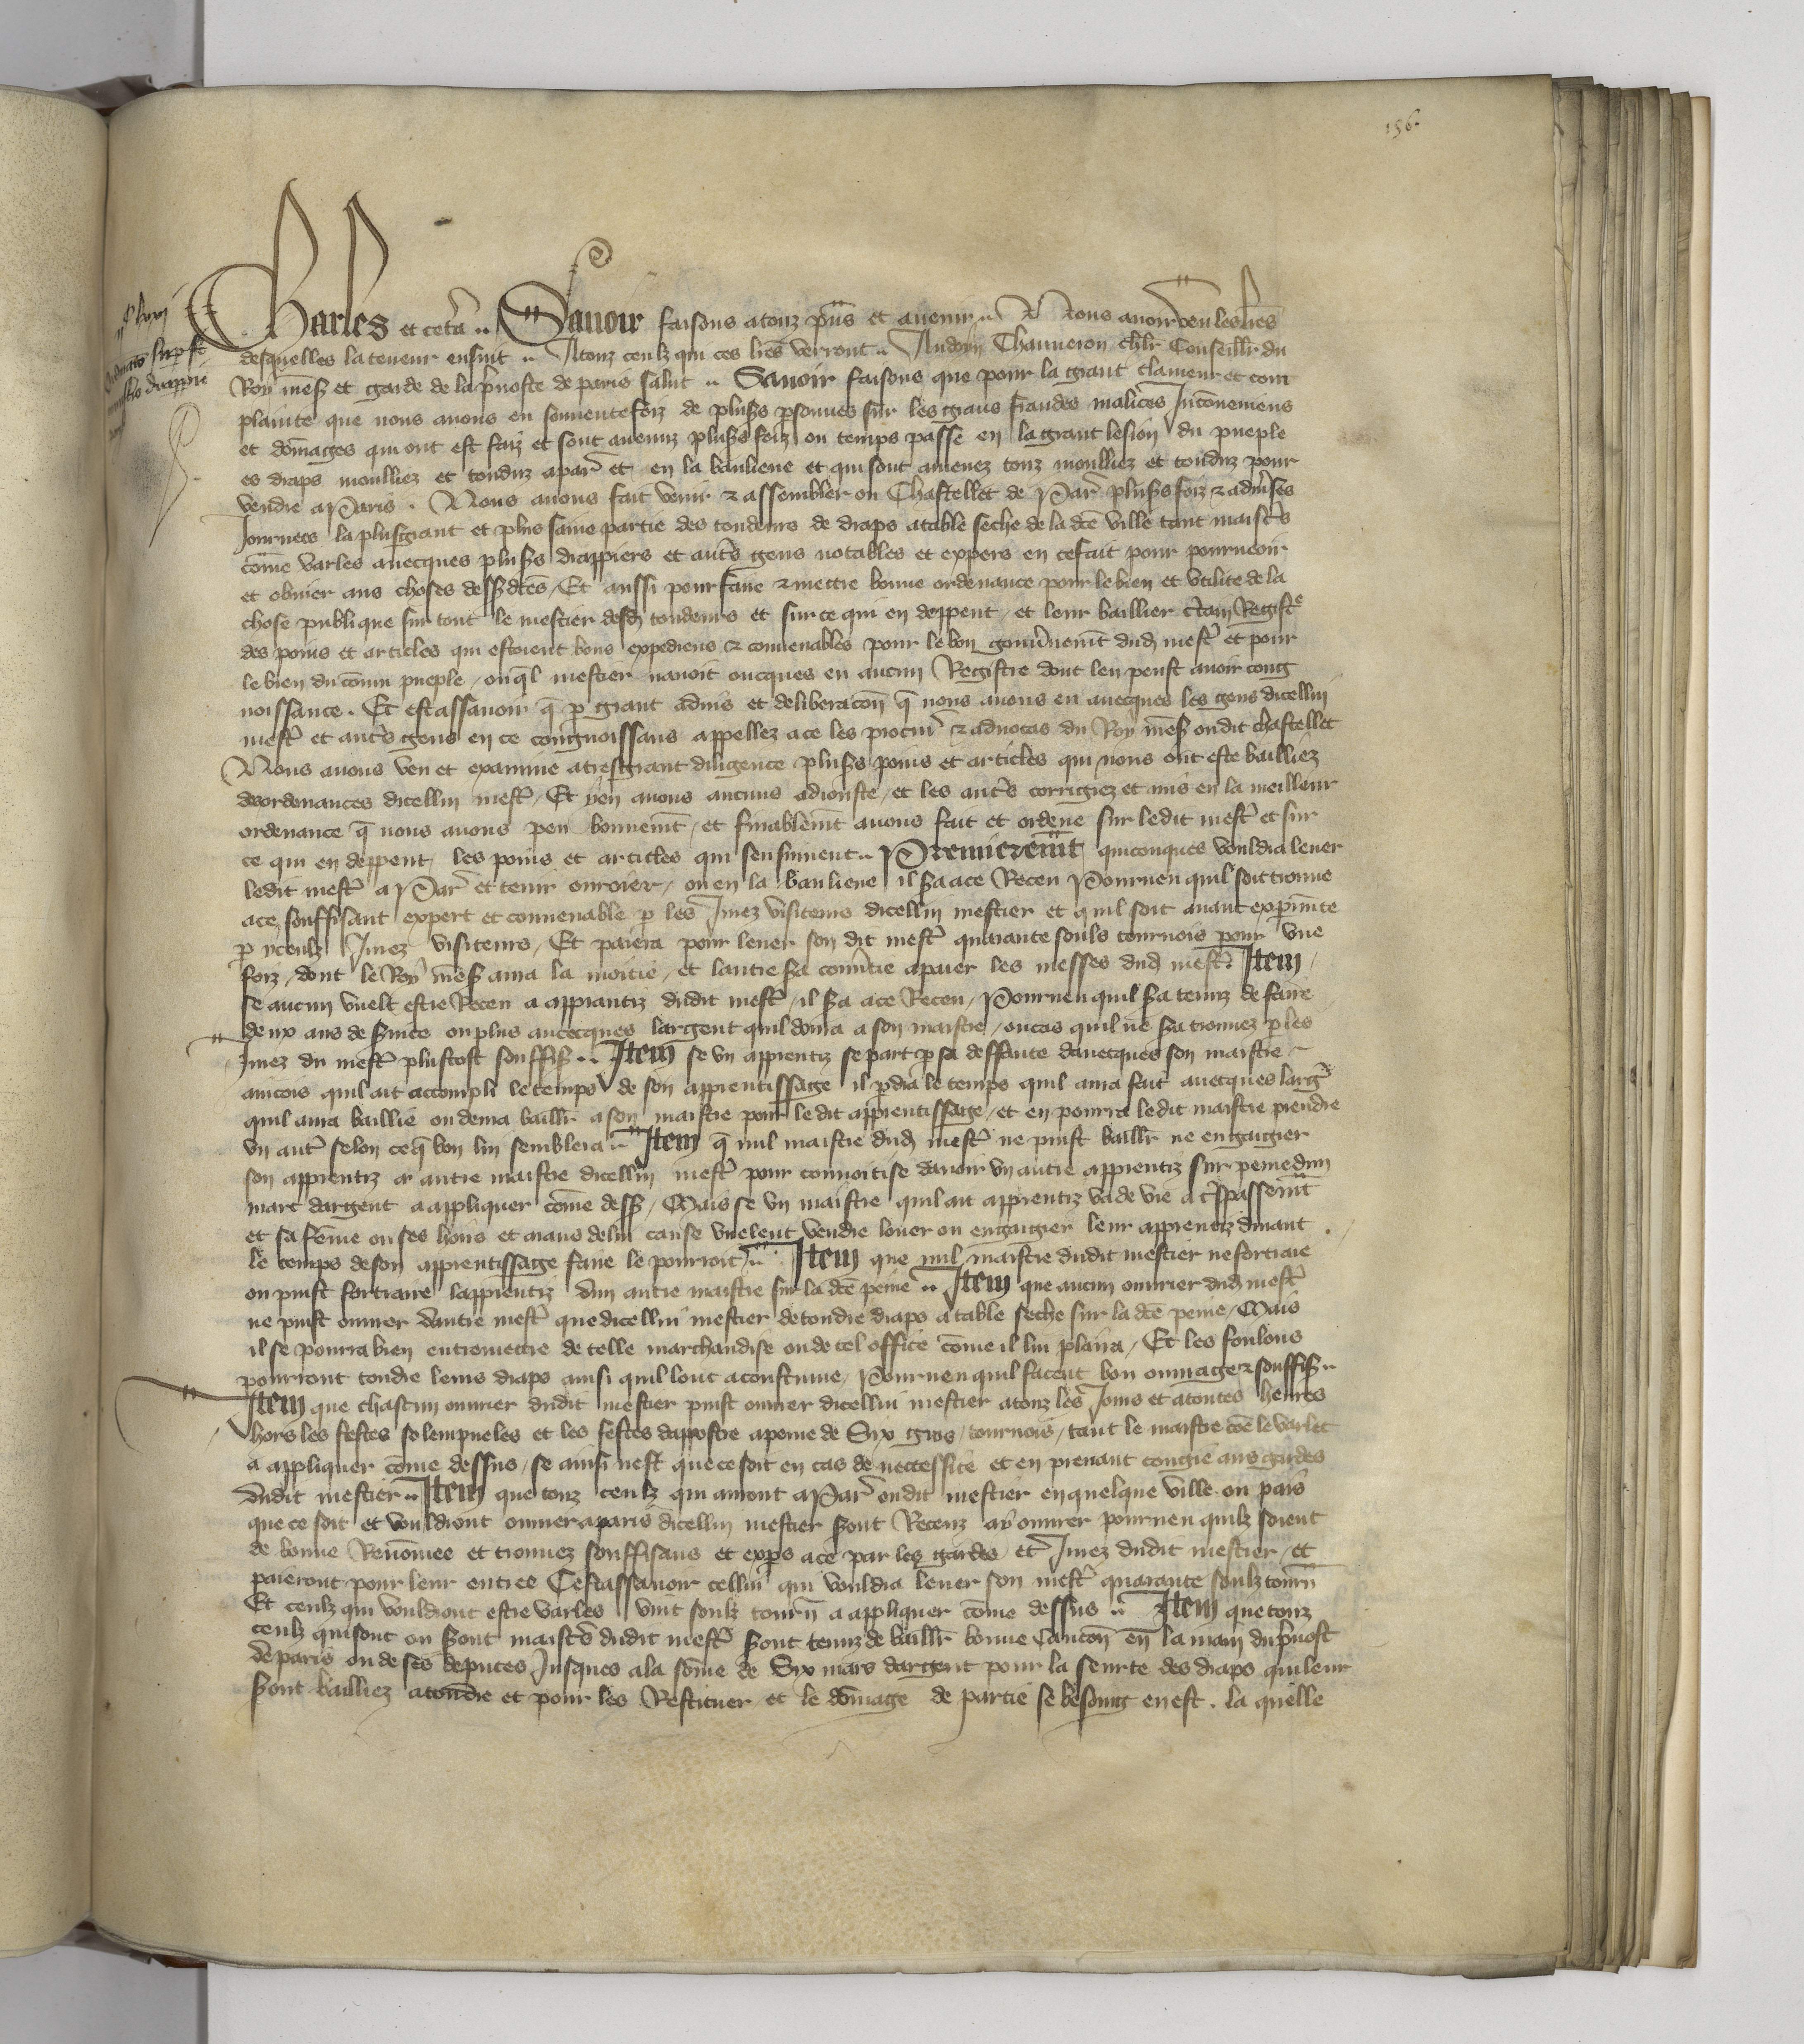 156.
Charles et cetera Savoir faisons a touz pñs et avenir Nous avoir veu les lr̃es
desquelles la teneur ensuit A touz ceulz qui ces lr̃es verront Audoyn Chauueron chlr̃ Conseillr̃ du
Roy nr̃e s̃ et garde de la p̃uoste de paris salut Sauoir faisons que pour la grant clameur et com
plainte que nous auons eu souuentefoiz de plus̃s p̃sonnes sur les grans fraudes malices Inconueniens
et dom̃ages qui ont est faiz et sont auenuz plus̃s foiz ou temps passe en la grant lesion du pueple
es draps moulliez et tonduz a par̃ et en la banlieue et qui sont amenez touz moulliez et tonduz pour
vendre a Paris . Nous auons fait venir & assembler ou Chastellet de Par̃ plus̃s foiz & a diu̾ses
Journees la plus grant et plus saine partie des tondeurs de draps a table seche de la dc̃e ville tant maist̃s
com̃e varles auecques plus̃s drappiers et autr̃s gens notables et expers en ce fait pour pourueoir
et obuier aus choses dess̃dc̃es / Et aussi pour faire & mettre bonne ordenance pour le bien et vtilite de la
chose publique sur tout le mestier desd̃ tondeurs et sur ce qui en deppent / et leur baillier c̾tain Registr̃e
des poins et articles qui estoient bons expediens & conuenables pour le bon gouu̾nem̃t dud̃ mest̃ et pour
le bien du com̃un pueple / ouql̃ mestier nauoit oncques eu aucun Registre dont len peust auoir cong
noissance . Et est assauoir q̃ p̱ grant aduis et deliberac̃on q̃ nous auons eu auecques les gens dicellui
mest̃ et autr̃s gens en ce congnoissans appellez a ce les procur̃ & aduocas du Roy nr̃e s̃ oudit chastellet
Nous auons veu et examine a tresgrant diligence plus̃s poins et articles qui nous ont este bailliez
des ordenances dicellui mest̃ / Et y en auons aucuns adiouste / et les autr̃s corrigiez et mis en la meilleur
ordenance q̃ nous auons peu bonnem̃t / et finablem̃t auons fait et ordene sur ledit mest̃ et sur
ce qui en deppent / les poins et articles qui sensuiuent Premierem̃t quiconques vouldra leuer
ledit mest̃ a Par̃ et tenir ouuroier / ou en la banlieue il s̃a a ce Receu Pourueu quil soit trouue
a ce souffisant expert et conuenable p̱ les Jurez visiteurs dicellui mestier et quil soit auant exp̱imẽte
p̱ yceulz Jurez visiteurs / Et paiera pour leuer son dit mest̃ quarante souls tournois pour vne
foiz / dont le Roy nr̃e s̃ aura la moitie / et lautre s̃a conu̾tie a paier les messes dud̃ mest̃ Item /
se aucun vuelt estre Receu a apprantiz dudit mest̃ / il s̃a a ce Receu / Pourueu quil s̃a tenuz de faire
deux ans de s̾uice ou plus auecques largent quil donra a son maistre / ou cas quil ne s̃a trouuez p̱ les
Jurez du mest̃ plustost souffis̃ Item se vn apprentiz se part p̱ sa deffaute dauecques son maistre
aincois quil ait accompli le temps de son apprentissage il p̱dra le temps quil aura fait auecques larg̃
quil aura baillie ou deura baillr̃ a son maistre pour le dit apprentissage / et en pourra ledit maistre prendre
vn autr̃ selon ce q̃ bon lui semblera Item q̃ nul maistre dud̃ mest̃ ne puist baillr̃ ne engagier
son apprentiz a autre maistre dicellui mest̃ pour conuoitise dauoir vn autre apprentiz sur peine dun
marc dargent a appliquer com̃e dess̃ / Mais se vn maistre quil ait apprentiz va de vie a t̾spassem̃t
et sa fem̃e ou ses hoirs et aians de lui cause vuelent vendre louer ou engaigier leur apprentiz durant
le temps de son apprentissage faire le pourroit Item que nul maistre dudit mestier ne fortraie
ou puist fortraire lapprentiz dun autre maistre sur la dc̃e peine Item que aucun ouurier dud̃ mest̃
ne puist ouurer dautre mest̃ que dicellui mestier de tondre draps a table seche sur la dc̃e peine / Mais
il se pourra bien entremettre de telle marchandise ou de tel office com̃e il lui plaira / Et les foulons
pourront tondre leurs draps ainsi quil lont acoustume / Pourueu quil facent bon ouurage & souffis̃
Item que chascun ouurier dudit mestier puist ouurer dicellui mestier a touz les Jours et a toutes heures
hors les festes solempneles et les festes dapostre a peine de Six gros tournois / tant le maistre com̃e le varlet
a appliquer com̃e dessus / se ainsi nest que ce soit en cas de neccessite et en prenant congie aus gardes
dudit mestier Item que touz ceulz qui auront a Par̃ ou dit mestier en quelque ville ou pais
que ce soit et vouldront ouurer a paris dicellui mestier s̃ont Receuz a y ouurer pourueu quilz soient
de bonne Renom̃ee et trouuez souffisans et exp̱s a ce par les gardes et Jurez dudit mestier / et
paieront pour leur entree Cestassauoir cellui qui vouldra leuer son mest̃ quarante soulz tourñ
Et ceulz qui vouldront estre varles vint soulz tourñ a appliquer com̃e dessus Item que touz
ceulz qui sont ou s̃ont maistr̃s dudit mest̃ s̃ont tenuz de baillr̃ bonne Cauc̃on en la main du p̃uost
de paris ou de ses deputes Jusques a la som̃e de Six mars dargent pour la seurte des draps qui leur
s̃ont bailliez a tondre et pour les Restituer et le dom̃age de partie se besoing en est . la quelle